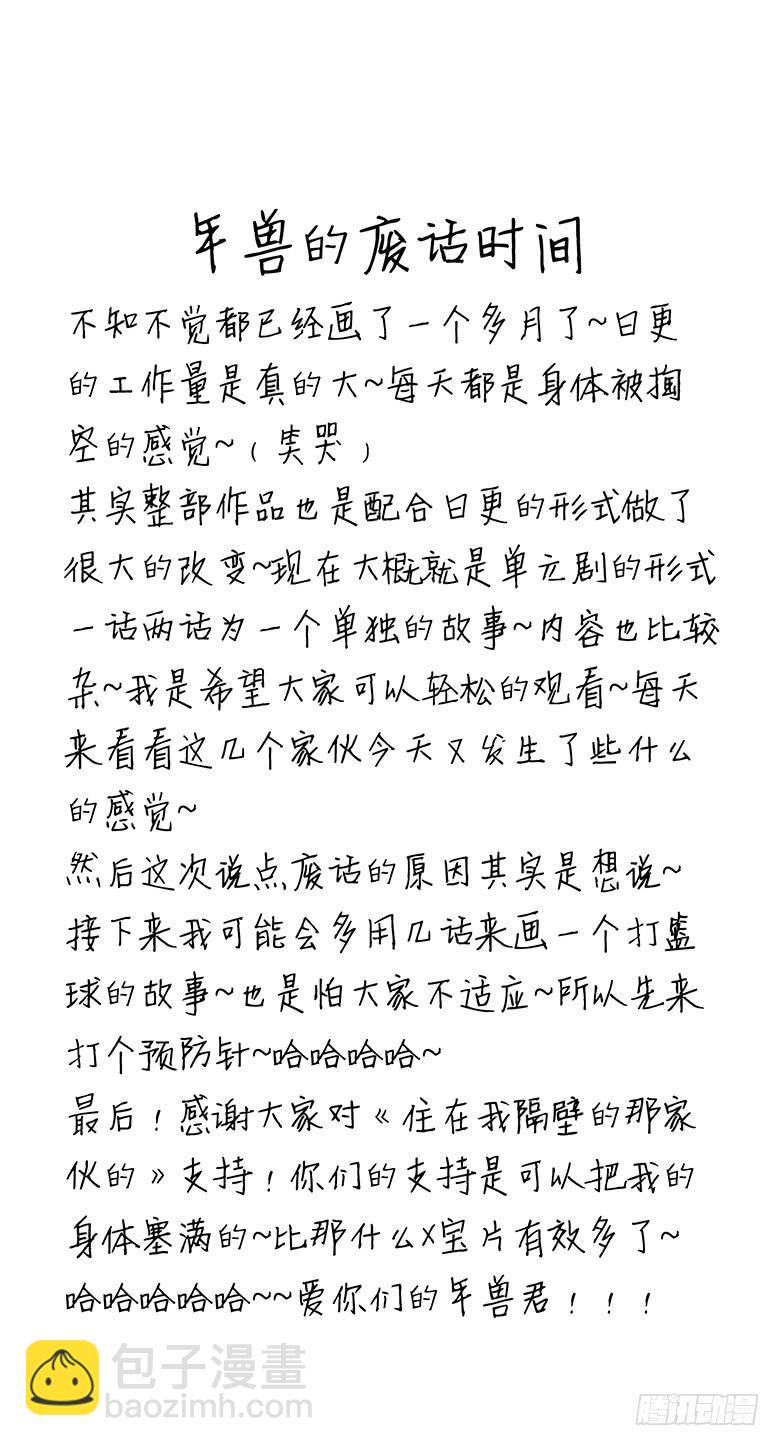 年兽的废话时间
不知不觉都已经画了一个多月了~日更
的工作量是真的大~每天都是身体被掏
空的感觉~(笑哭)
其实整部作品也是配合日更的形式做了
很大的改变~现在大概就是单元剧的形式
一话两话为一个单独的故事~内容也比较
杂~我是希望大家可以轻松的观看~每天
来看看这几个家伙今天又发生了些什么
的感觉~
然后这次说点废话的原因其实是想说~
接下来我可能会多用几话来画一个打篮
球的故事~也是怕大家不适应~所以先来
打个预防针~哈哈哈哈~
最后!感谢大家对《住在我隔壁的那家
伙的》支持!你们的支持是可以把我的
身体塞满的~比那什么X宝片有效多了~
哈哈哈哈哈~~爱你们的年兽君!!!
包子漫畫
baozimh.com
腾讯动漫